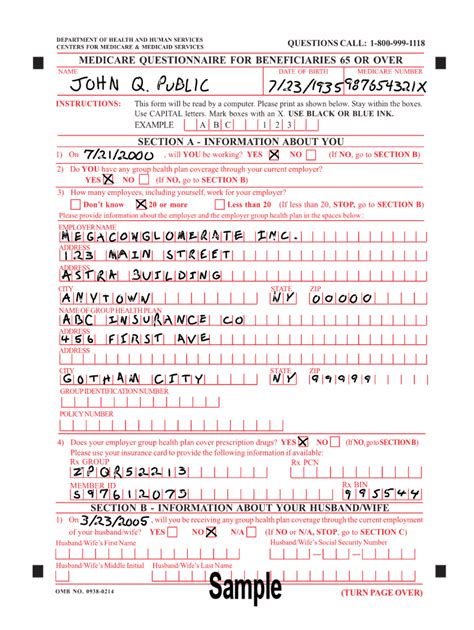 DEPARTMENT OF HEALTH AND HUMAN SERVICES
CENTERS FOR MEDICARE & MEDICAID SERVICES
QUESTIONS CALL: 1-800-999-1118
MEDICARE QUESTIONNAIRE FOR BENEFICIARIES 65 OR OVER
NAME DATE OF BIRTH MEDICARE NUMBER
JOHN Q. PUBLIC 7/23/1935 987654321X
INSTRUCTIONS: This form will be read by a computer. Please print as shown below. Stay within the boxes.
Use CAPITAL letters. Mark boxes with an X. USE BLACK OR BLUE INK.
EXAMPLE A B C 1 2 3
SECTION A - INFORMATION ABOUT YOU
1) On 7/21/2000, will YOU be working? YES X NO (If NO, go to SECTION B)
2) Do YOU have any group health plan coverage through your current employer?
YES X NO (If NO, go to SECTION B)
3) How many employees, including yourself, work for your employer?
Don't know X 20 or more Less than 20 (If less than 20, STOP, go to SECTION B)
Please provide information about the employer and the employer group health plan in the spaces below:
EMPLOYER NAME
MEGACONGLOMERATE INC.
ADDRESS
123 MAIN STREET
ADDRESS
ASTRA BUILDING
CITY STATE ZIP
ANYTOWN NY 00000
NAME OF GROUP HEALTH PLAN
ABC INSURANCE CO
ADDRESS
456 FIRST AVE
ADDRESS
CITY STATE ZIP
GOTHAM CITY NY 99999
GROUP IDENTIFICATION NUMBER
POLICY NUMBER
4) Does your employer group health plan cover prescription drugs? YES X NO (If NO, go to SECTION B)
Please use your insurance card to provide the following information if available:
Rx GROUP Rx PCN
ZPQR52213
MEMBER ID Rx BIN
S97612073 995544
SECTION B - INFORMATION ABOUT YOUR HUSBAND/WIFE
1) On 3/23/2005, will you be receiving any group health plan coverage through the current employment
of your husband/wife? YES NO X N/A (If NO or N/A, STOP, go to SECTION C)
Husband/Wife's First Name Husband/Wife's Social Security Number
Husband/Wife's Middle Initial Husband/Wife's Last Name
OMB NO. 0938-0214 Sample (TURN PAGE OVER)